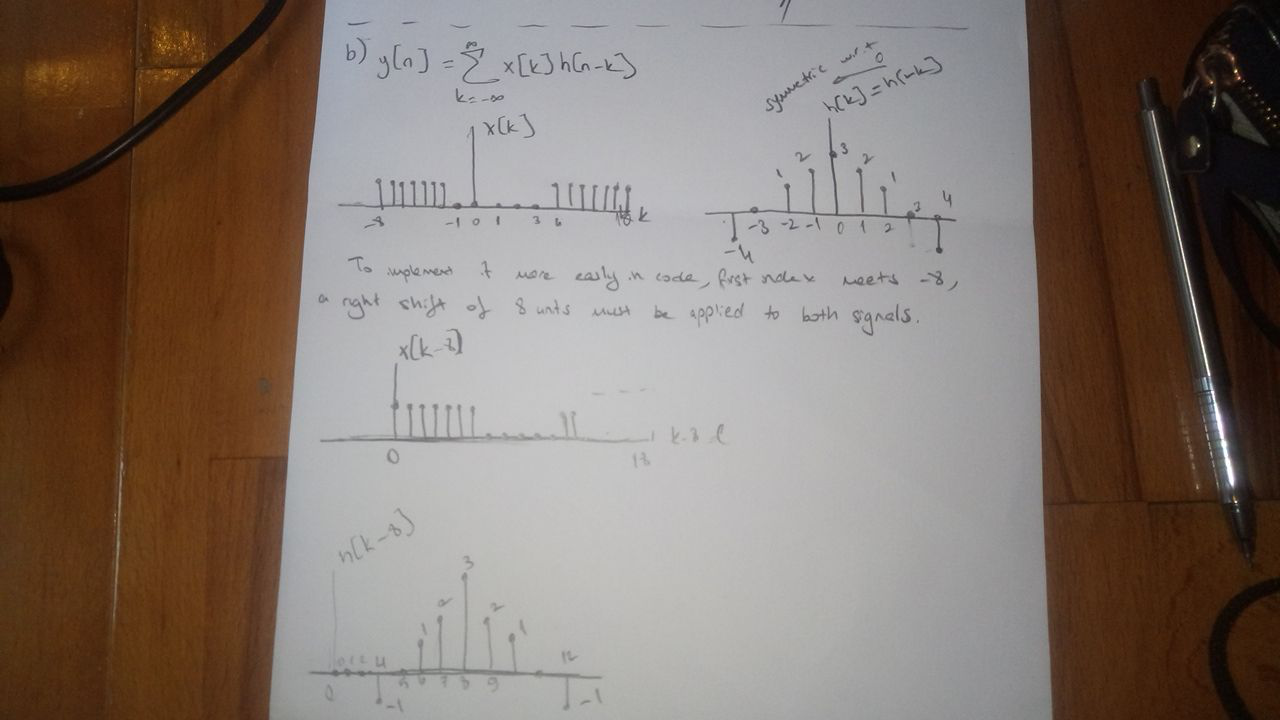 b) y[n] = ∞ Σ k=-∞ x[k] h[n-k]
symmetric w.r.t 0
h[k] = h[-k]
x[k]
-8 -1 0 1 3 6 18 k
1 2 3 2 1 3 4
-4 -3 -2 -1 0 1 2
To implement it more easily in code, first index meets -8,
a right shift of 8 units must be applied to both signals.
x[k-8]
0 18
h[k-8]
1 2 3 2 1 12
0 0 1 2 4 5 6 7 8 9
-1 -1